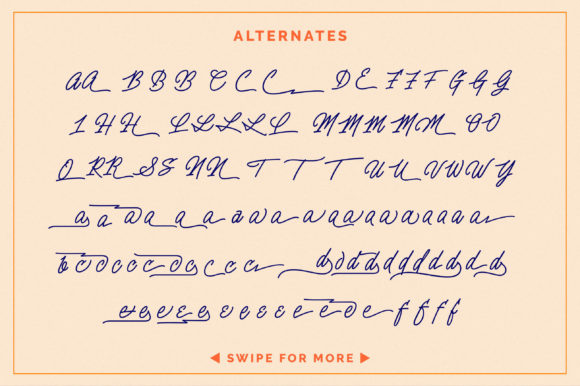 ALTERNATES
A A B B B C C C D E F F F G G G
I H H L L L L L M M M M M O O
Q R R S S N N T T T U U V W W Y
a a a a a a a a a a a a a a a a a
c c c c c c c c c d d d d d d d d d
e e e e e e e e e e e e f f f f
◀ SWIPE FOR MORE ▶